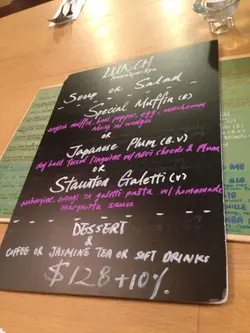 LUNCH
Soup or Salad
Special Muffin
english muffin, beef pepper, egg, mushroom
along w/ wedges
or
Japanese Plum (B.V)
tossed linguine w/ nori shreds & Plum
or
Staunton Galetti (V)
aubergine, w/ homemade
sauce
DESSERT
&
COFFEE OR JASMINE TEA OR SOFT DRINKS
$128+10%